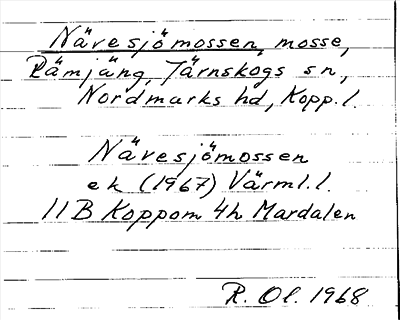 Nävesjömossen, mosse,
Rämjäng, Järnskogs sn,
Nordmarks hd, Kopp. l.
Nävesjömossen
ek (1967) Värml. l.
11B Koppom 4h Mardalen
R. Ol. 1968